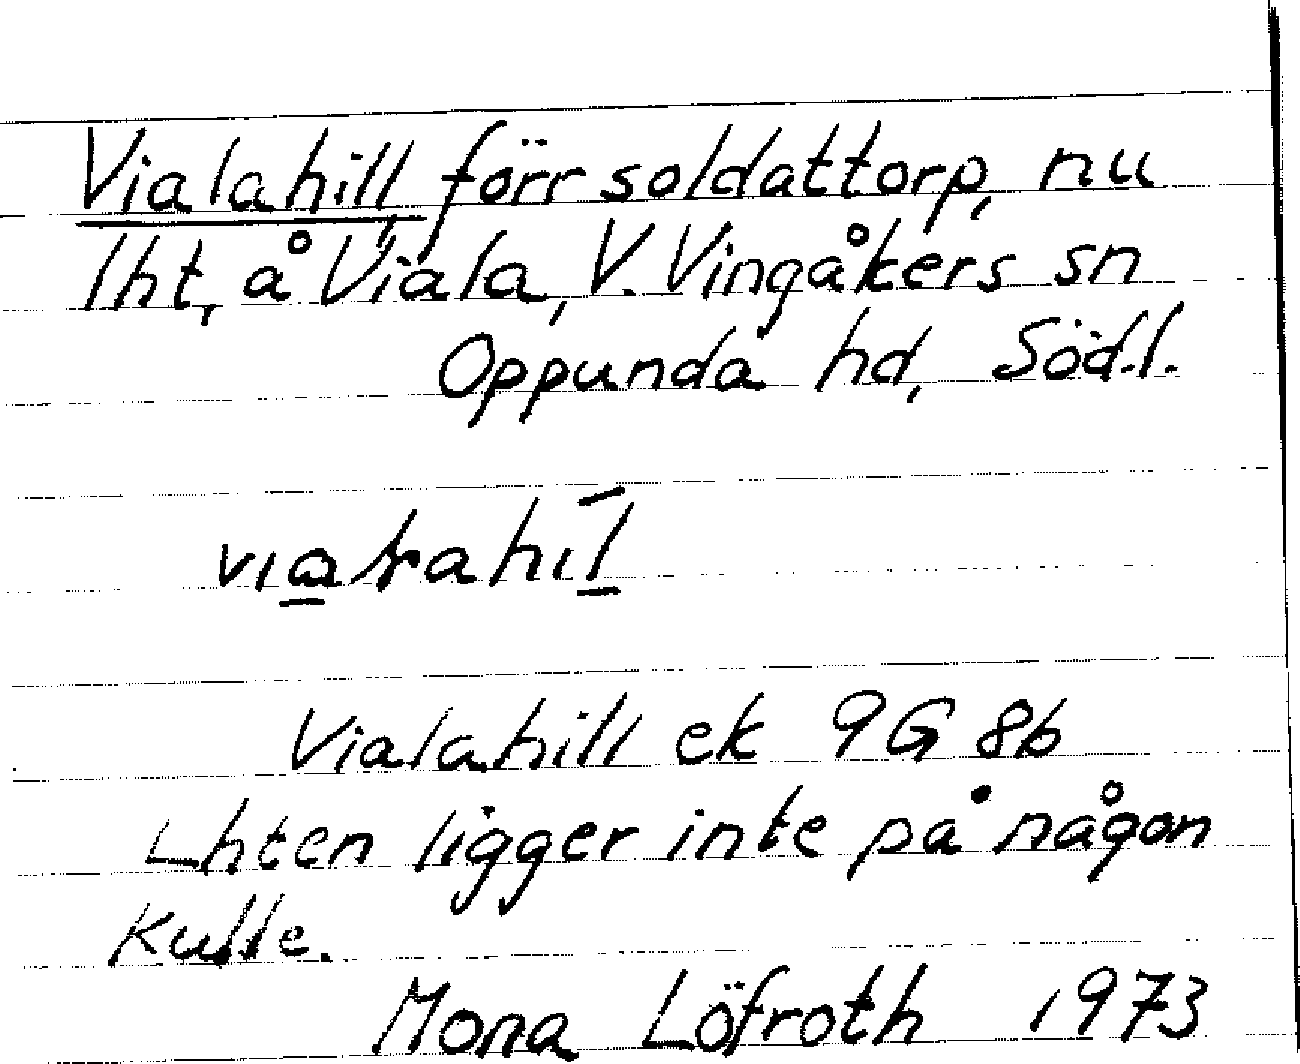 Vialahill, förr soldattorp, nu
lht, å Viala, V. Vingåkers sn
Oppunda hd, Söd.l.
Vialahill ek 9G 8b
Lhten ligger inte på någon
kulle.
Mona Löfroth 1973